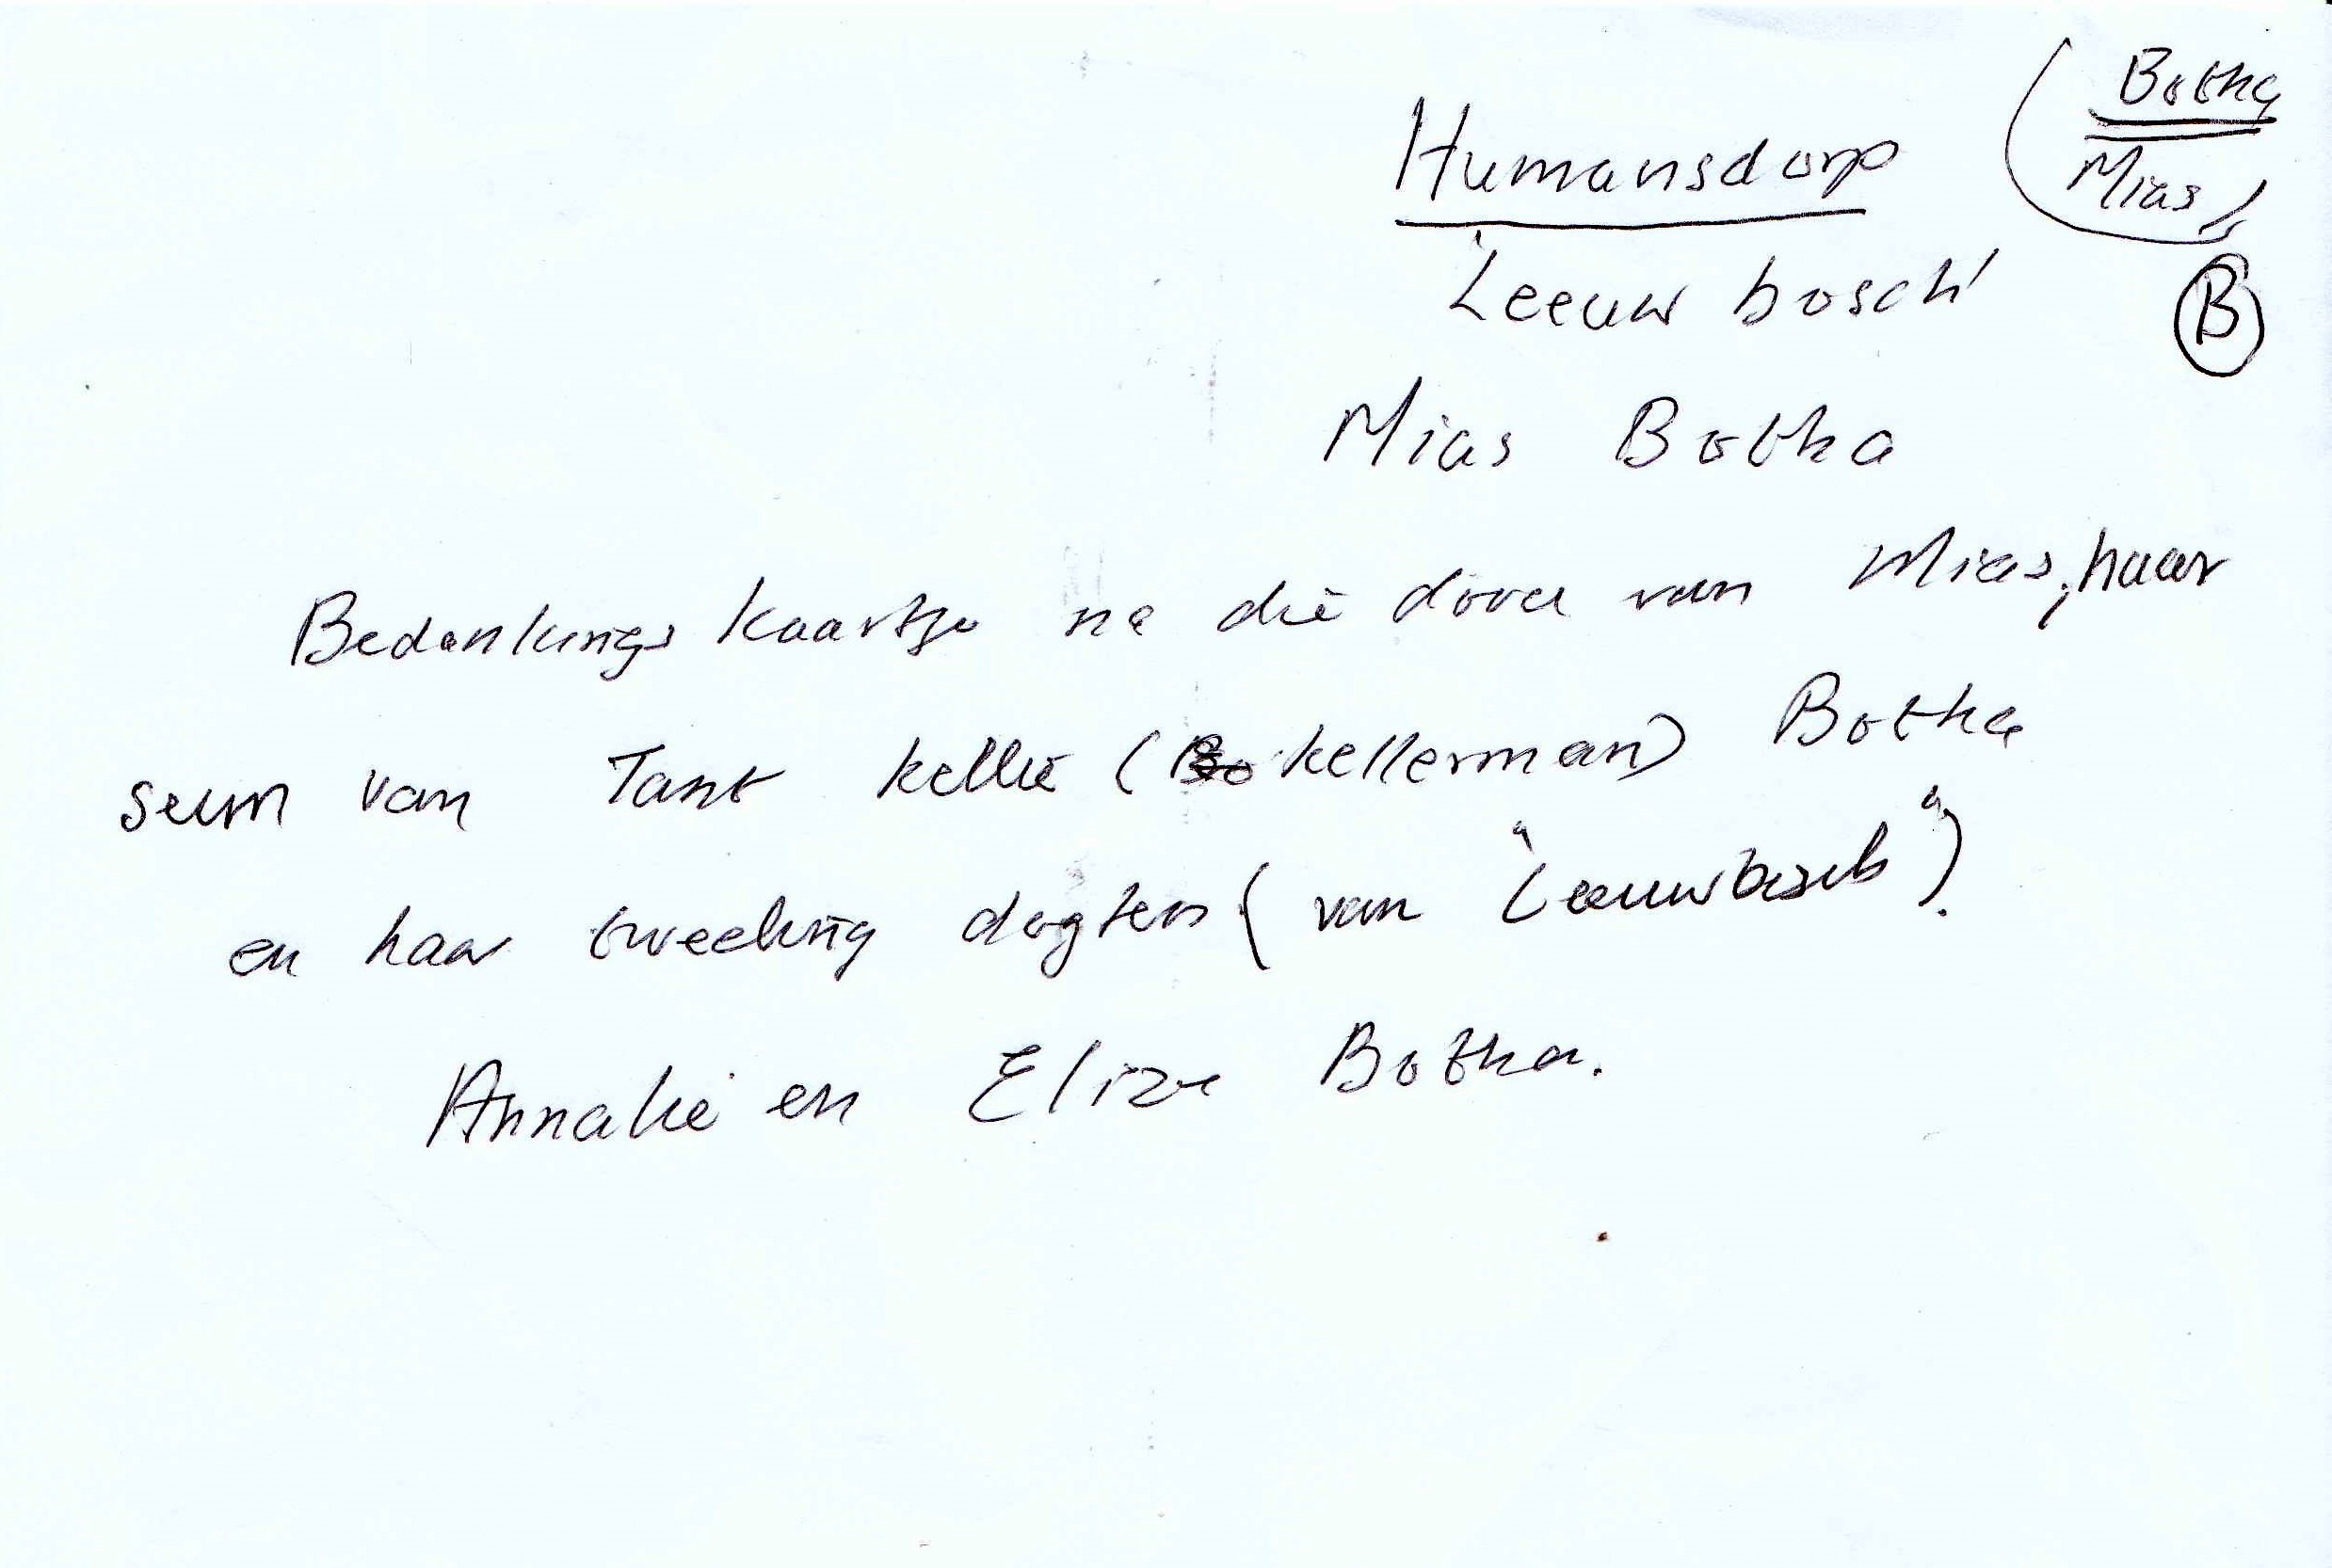 Botha
Mias
B
Humansdorp
'Leeuwbosch'
Mias Botha
Bedankings kaartjie na die dood van Mias, haar
seun van Tant Kellie (Kellerman) Botha
en haar tweeling dogters (van "Leeuwbosch").
Annalie en Elize Botha.